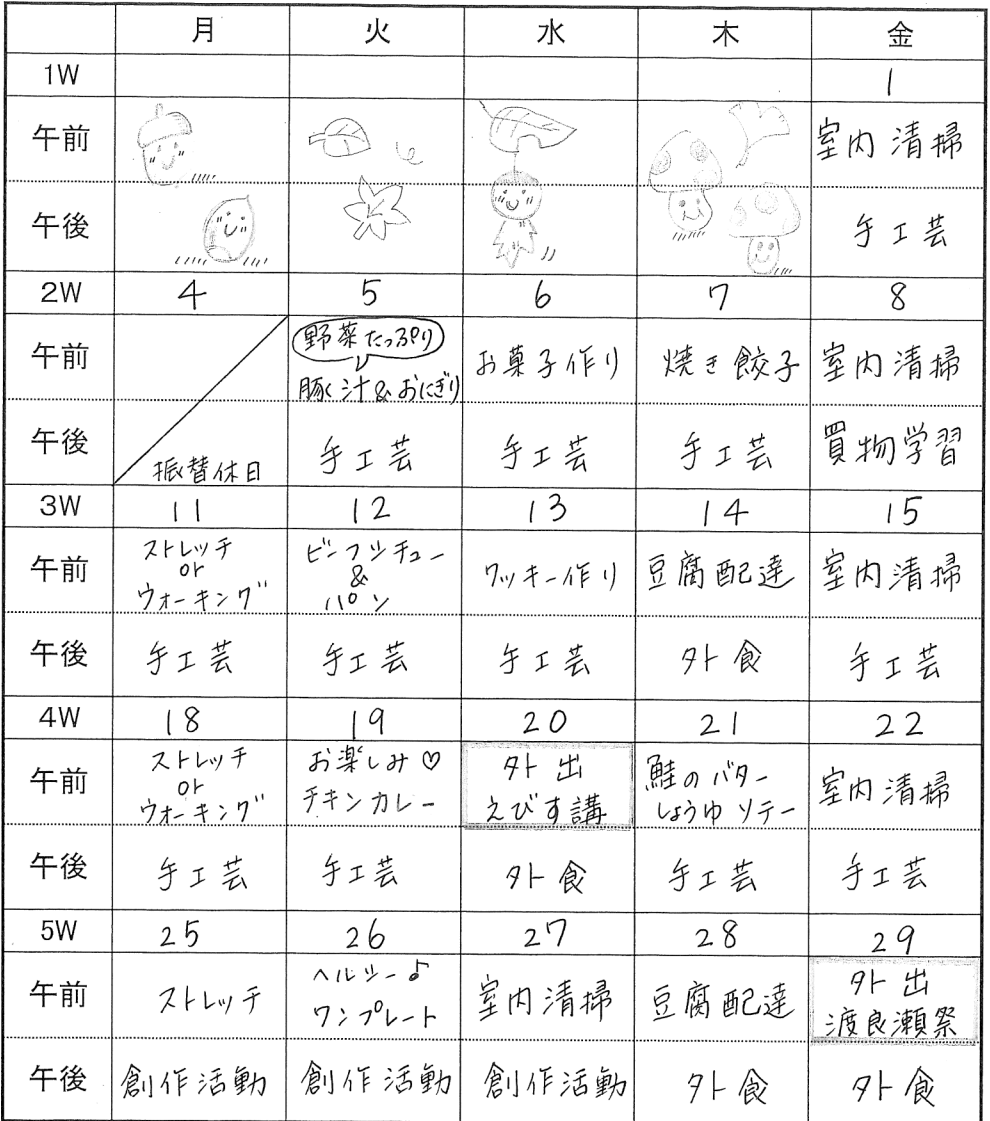 月 火 水 木 金
1W 1
午前 室内清掃
午後 手工芸
2W 4 5 6 7 8
午前 野菜たっぷり 豚汁&おにぎり お菓子作り 焼き餃子 室内清掃
午後 振替休日 手工芸 手工芸 手工芸 買物学習
3W 11 12 13 14 15
午前 ストレッチ or ウォーキング ビーフシチュー & パン クッキー作り 豆腐配達 室内清掃
午後 手工芸 手工芸 手工芸 外食 手工芸
4W 18 19 20 21 22
午前 ストレッチ or ウォーキング お楽しみ♡ チキンカレー 外出 えびす講 鮭のバター しょうゆソテー 室内清掃
午後 手工芸 手工芸 外食 手工芸 手工芸
5W 25 26 27 28 29
午前 ストレッチ ヘルシー♪ ワンプレート 室内清掃 豆腐配達 外出 渡良瀬祭
午後 創作活動 創作活動 創作活動 外食 外食